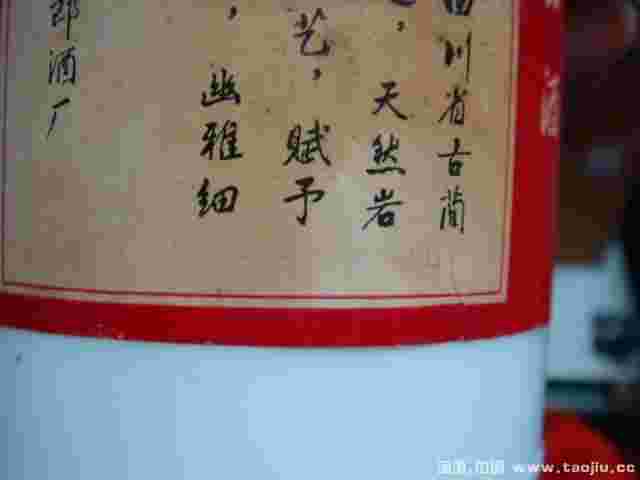 川省古蔺
，天然岩
艺，赋予
，幽雅细
郎酒厂
www.taojiu.cc